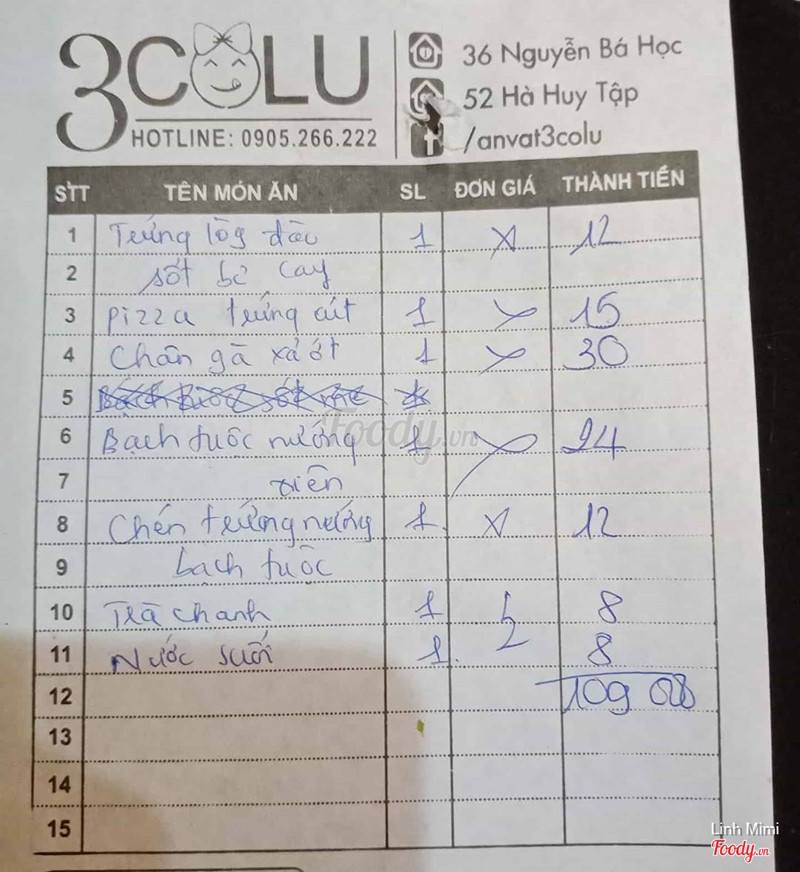 3COLU
HOTLINE: 0905.266.222
36 Nguyễn Bá Học
52 Hà Huy Tập
/anvat3colu
STT TÊN MÓN ĂN SL ĐƠN GIÁ THÀNH TIỀN
1 Trứng lòg đào 1 x 12
2 sốt bơ cay
3 Pizza trứng cút 1 x 15
4 Chân gà xả ớt 1 x 30
5
6 Bạch tuộc nướng 1 24
7 xiên
8 Chén trứng nướng 1 x 12
9 bạch tuộc
10 Trà chanh 1 8
11 Nước suối 1 8
12 109
13
14
15
Foody.vn
Linh Mimi
Foody.vn